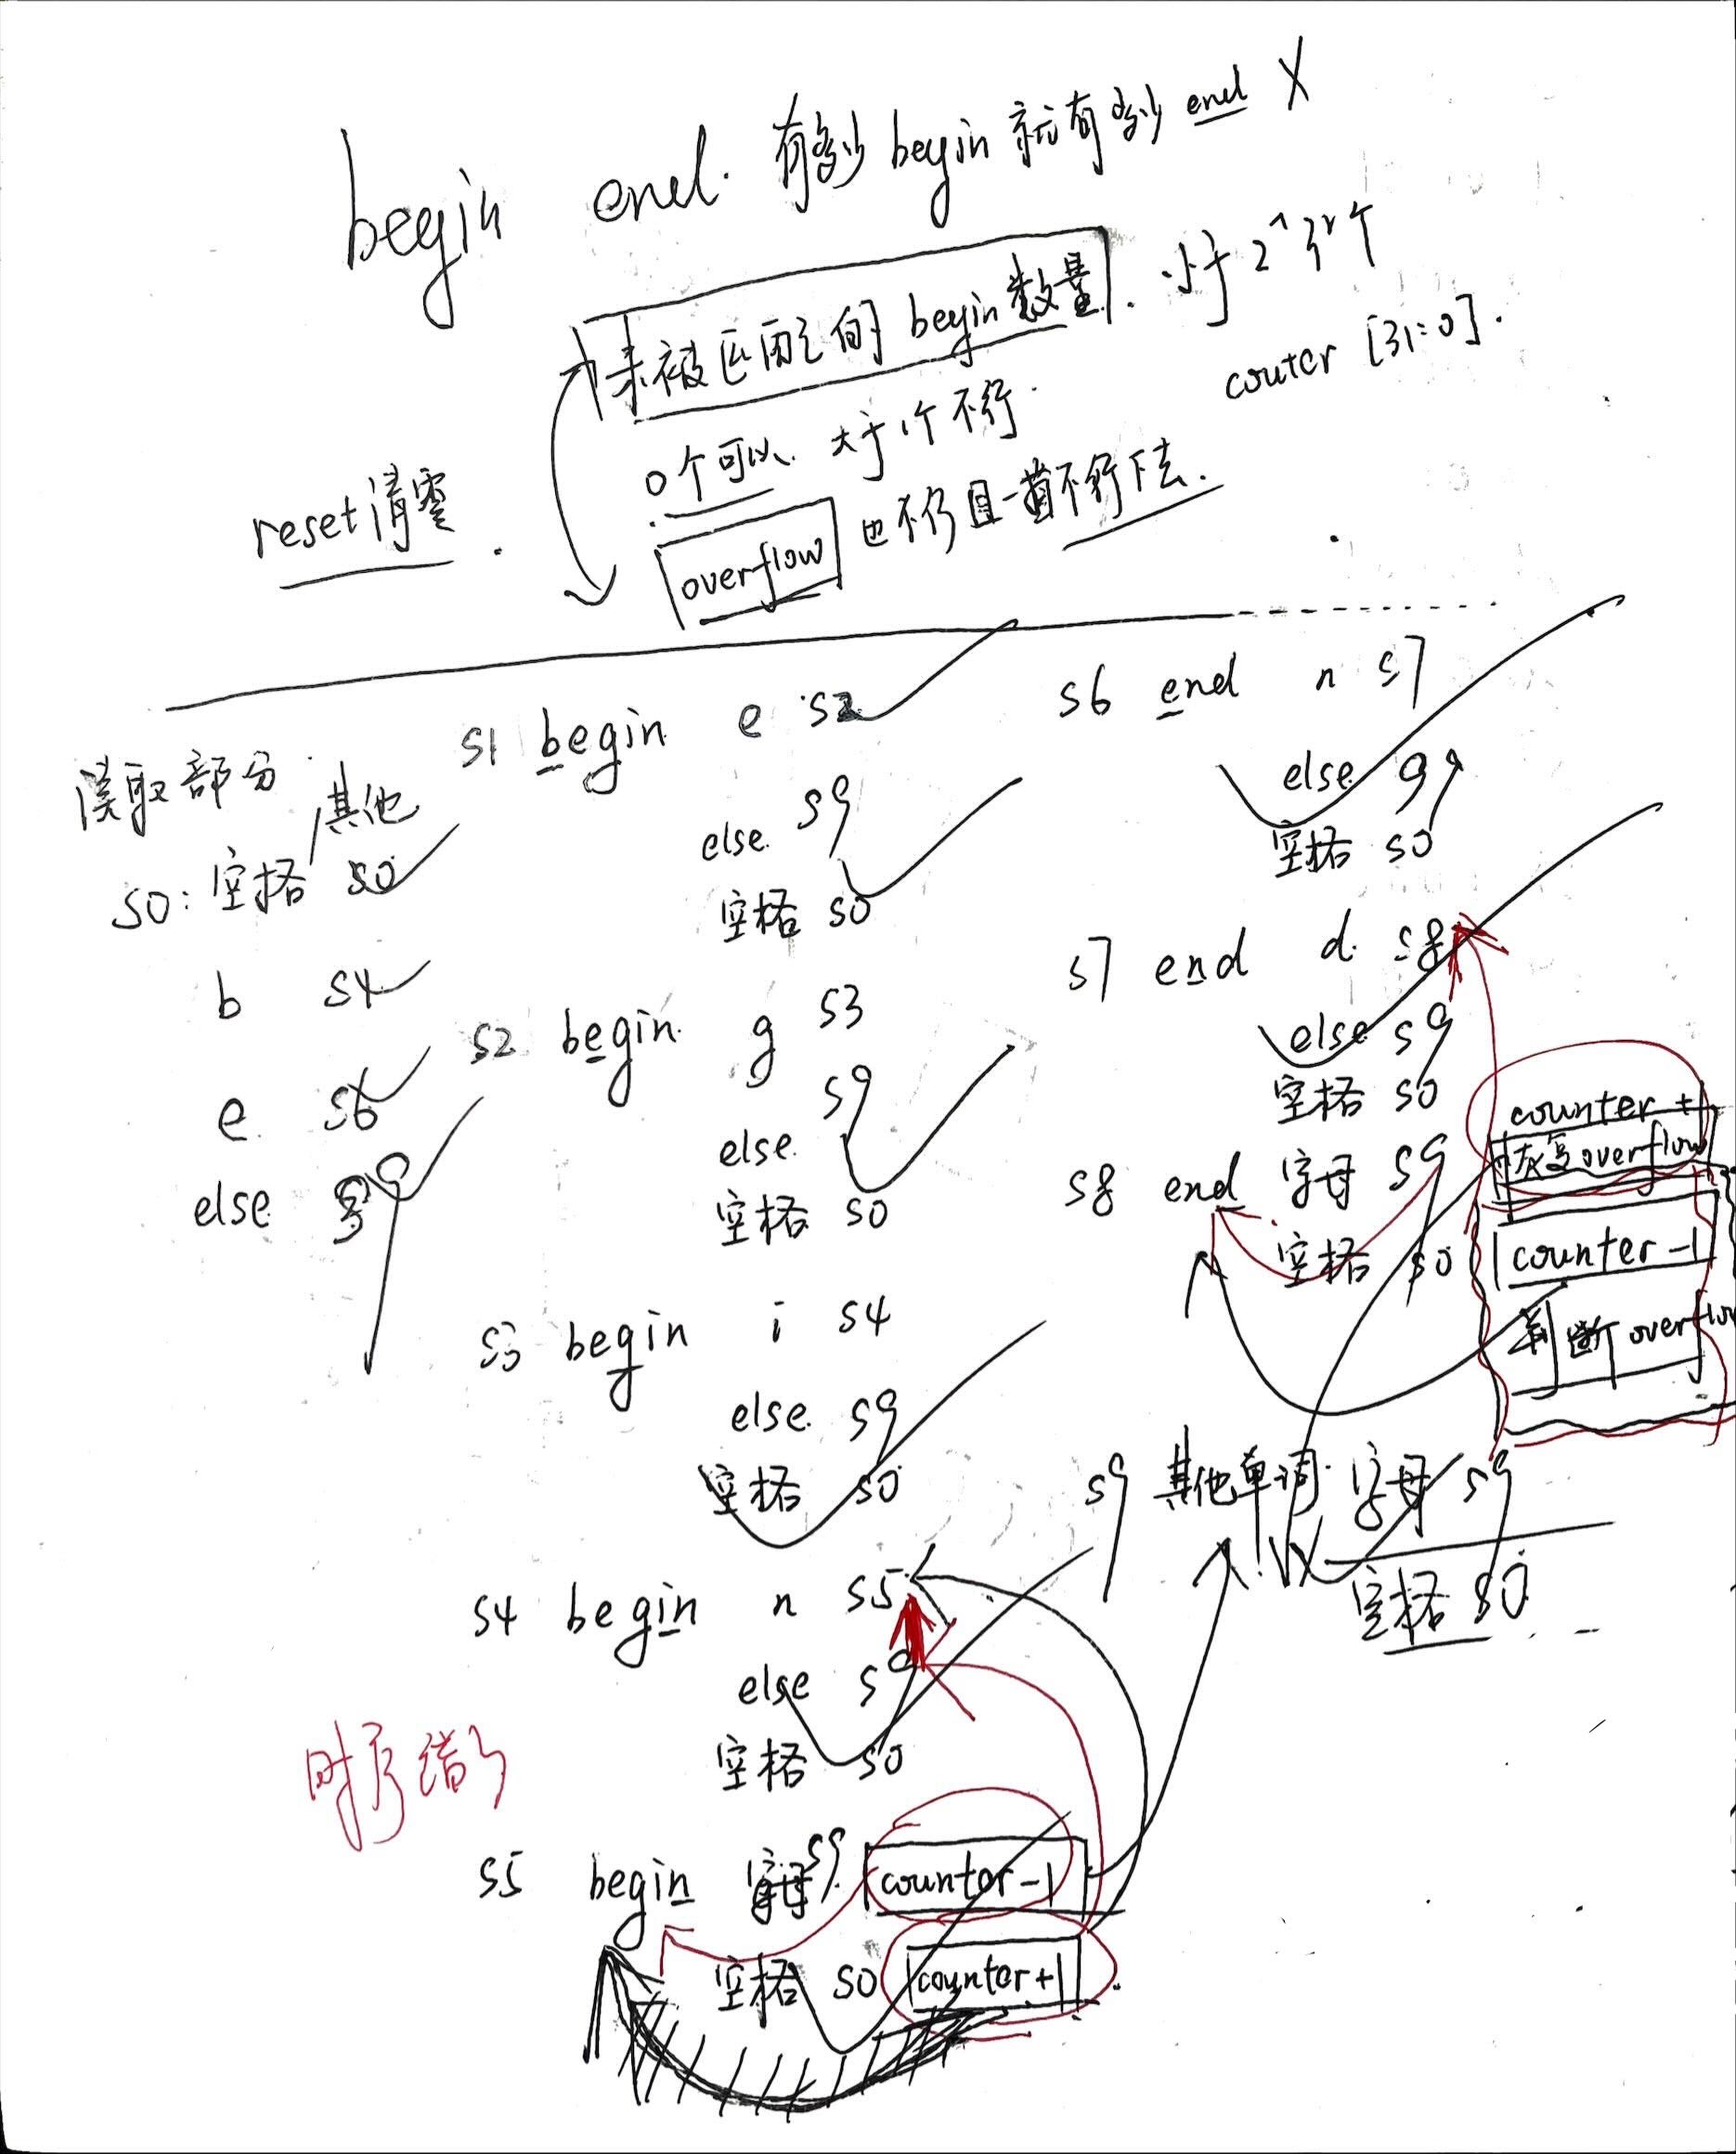 begin end. 有多少 begin 就有多少 end X
未被匹配的 begin数量. 小于 2^32个
couter [31:0].
0个可以. 大于1个不行.
reset清零.
overflow 也不行且一直不行下去.
读取部分
s0: 空格/其他 s0
b s4
e s6
else s9
s1 begin e s2
else s9
空格 s0
s2 begin g s3
else s9
空格 s0
s3 begin i s4
else s9
空格 s0
s4 begin n s5
else s9
空格 s0
时序错了
s5 begin 字母 s9 counter-1
空格 s0 counter+1
s6 end n s7
else 9
空格 s0
s7 end d s8
else s9
空格 s0
s8 end 字母 s9 counter+1
恢复overflow
空格 s0 counter-1
判断overflow
s9 其他单词 字母 s9
空格 s0